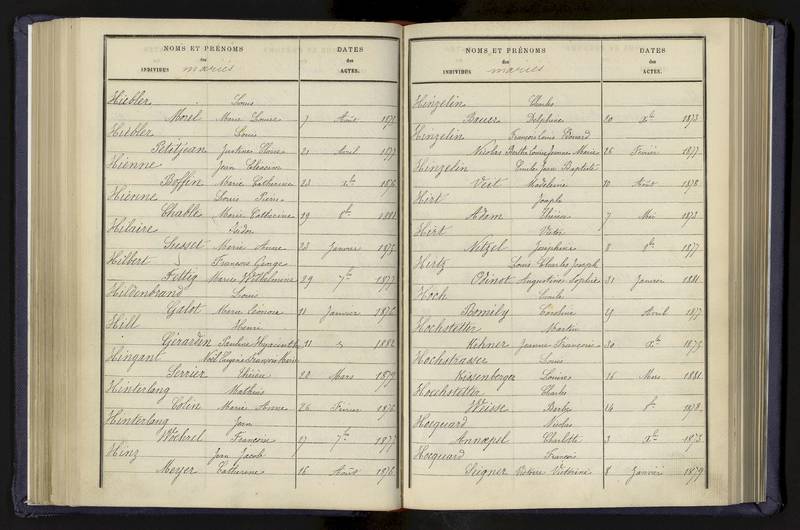 NOMS ET PRÉNOMS
des
INDIVIDUS mariés
DATES
des
ACTES.
Hiebler Louis
Morel Marie Louise 7 Août 1875
Hiebler Louis
Petitjean Justine Claire 21 Avril 1877
Hienne Jean
Boffin Marie Catherine 23 xbre 1876
Hienne Louis Pierre
Chable Marie Catherine 19 8bre 1881
Hilaire Isidor
Susset Marie Anne 23 Janvier 1875
Hilbert François George
Fettig Marie 29 7bre 1877
Hildenbrand Louis
Galot Marie 11 Janvier 1876
Hill Henri
Girardin Pauline Hyacinthe 11 1882
Hingant Noël Eugène François Marie
Serrier Thérèse 20 Mars 1879
Hinterlang Mathias
Colin Marie Anne 26 Février 1876
Hinterlang Jean
Woehrel Françoise 17 7bre 1877
Hinz Jean Jacob
Meyer Catherine 16 Août 1876
NOMS ET PRÉNOMS
des
INDIVIDUS mariés
DATES
des
ACTES.
Hinzelin Charles
Bauer Delphine 20 xbre 1873
Hinzelin François Louis Edouard
Nicolas Berthe Louise Jeanne Marie 26 Février 1877
Hinzelin Emile Jean Baptiste
Veit Madeleine 10 Août 1878
Hirt Joseph
Adam Thérèse 7 Mai 1873
Hirt Victor
Nitzel Joséphine 8 8bre 1877
Hirtz Louis Charles Joseph
Odinot Augustine Sophie 31 Janvier 1881
Hoch Emile
Romily Caroline 29 Avril 1877
Hochstetter Martin
Kehner Jeanne Françoise 30 xbre 1875
Hochstrasser Louis
Kissenberger Louise 16 Mars 1881
Hoechstetter Charles
Weisse Barbe 14 8bre 1878
Hocquard Nicolas
Annapel Charlotte 3 xbre 1873
Hocquard François
Seigner Victorine 8 Janvier 1879